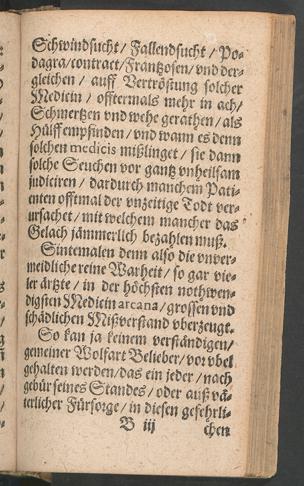 Schwindsucht / Fallendsucht / Po-
dagra / contract / Frantzosen / vnd der-
gleichen / auff Vertröstung solcher
Medicin / offtermals mehr in ach /
Schmertzen vnd wehe gerathen / als
Hülff empfinden / vnd wann es denn
solchen medicis mißlinget / sie dann
solche Seuchen vor gantz vnheilsam
judiciren / dardurch manchem Pati-
enten offtmal der vnzeitige Todt ver-
ursachet / mit welchem mancher das
Gelach jämmerlich bezahlen muß.
Sintemalen denn also die vnver-
meidliche reine Warheit / so gar vie-
ler ärtzte / in der höchsten nothwen-
digsten Medicin arcana / grossen vnd
schädlichen Mißverstand vberzeugt.
So kan ja keinem verständigen /
gemeiner Wolfart Belieber / vor vbel
gehalten werden / das ein jeder / nach
gebür seines Standes / oder auß vä-
terlicher Fürsorge / in diesen gefehrli-
B iij chen